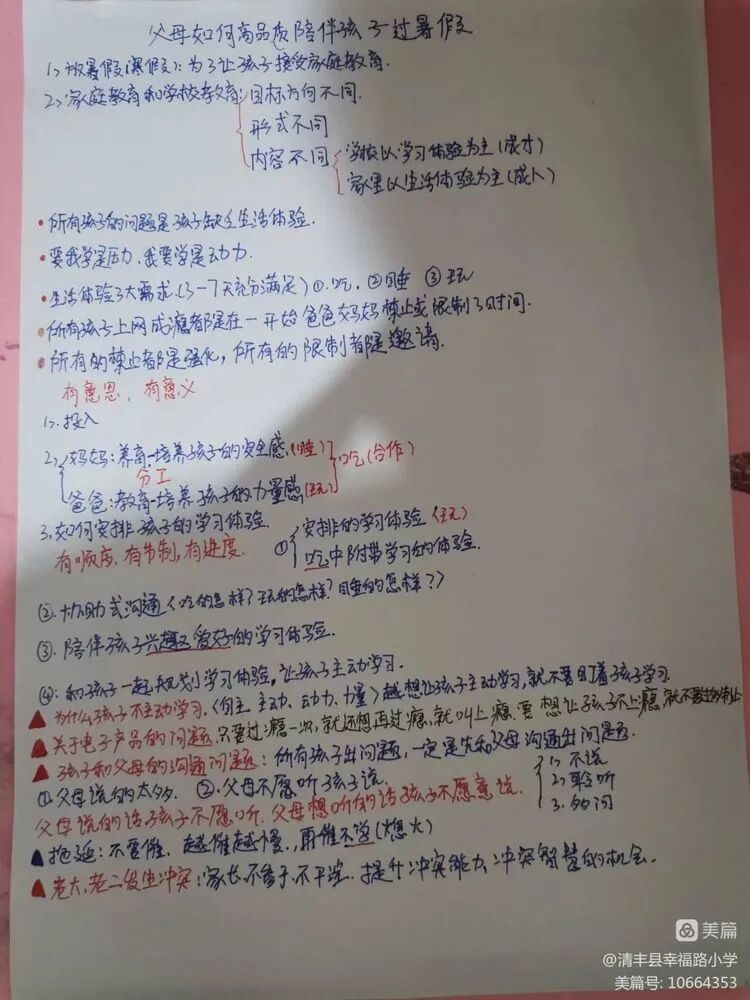 父母如何高品质陪伴孩子过暑假
1>放暑假(寒假):为了让孩子接受家庭教育.
2>家庭教育和学校教育:目标方向不同.
形式不同
内容不同 学校以学习体验为主(成才)
家里以生活体验为主(成人)
·所有孩子的问题是孩子缺乏生活体验.
·要我学是压力,我要学是动力.
·生活体验3大需求.(3-7天充分满足)①.吃.②睡 ③玩
·所有孩子上网成瘾者都是在一开始爸爸妈妈禁止或限制了时间.
·所有的禁止都是强化,所有的限制都是邀请.
有意思,有意义
1>.投入
2>妈妈:养育-培养孩子的安全感(睡) 吃(合作)
分工
爸爸:教育-培养孩子的力量感(玩)
3.如何安排孩子的学习体验. 安排的学习体验(玩)
有顺序.有节制,有进度. ① 吃中附带学习的体验.
②.协助式沟通<吃的怎样?玩的怎样?睡的怎样?>
③.陪伴孩子兴趣爱好的学习体验.
④:和孩子一起规划学习体验,让孩子主动学习.
▲为什么孩子不主动学习.<自主.主动、动力、力量>越想让孩子主动学习,就不要盯着孩子学习.
▲关于电子产品的问题.只要过瘾一次,就还想再过瘾,就叫上瘾.要想让孩子不上瘾,就不要过多制止
▲孩子和父母的沟通问题:所有孩子出问题,一定是先和父母沟通出问题.
①.父母说的太多. ②.父母不愿听孩子说. 1>不说
父母说的话孩子不愿听.父母想听的话孩子不愿意说. 2>聆听
3.多问
▲拖延:不要催.越催越慢.,再催不学(熄火)
▲老大,老二发生冲突:家长不参予.不干涉.提升冲突能力,冲突智慧的机会.
美篇
@清丰县幸福路小学
美篇号: 10664353